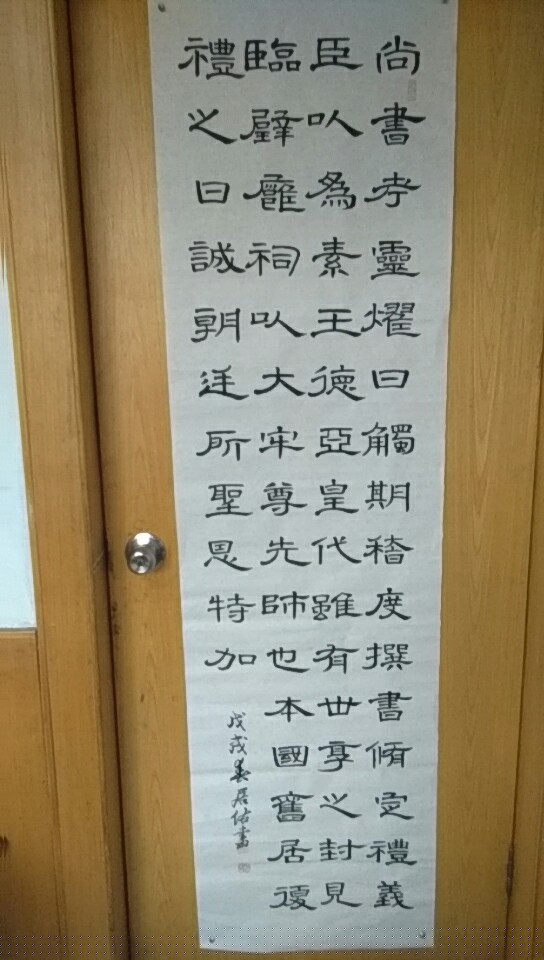 尚書孝靈燿曰觸期稽度撰書脩定禮義
臣以為素王德亞皇代雖有世享之封見
臨辟廱祠以大牢尊先師也本國舊居復
禮之日誠朝廷所聖恩特加
戊戌春居佑書